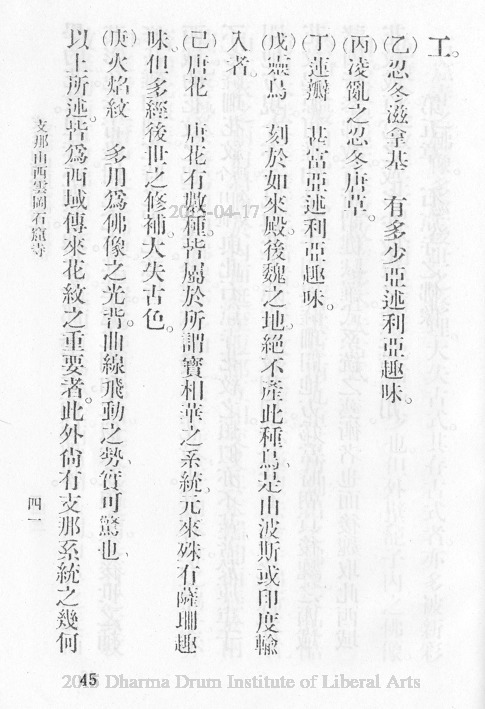 工。
(乙)忍冬滋拿基　有多少亞述利亞趣味。
(丙)凌亂之忍冬唐草。
(丁)蓮瓣　甚富亞述利亞趣味。
(戊)靈鳥　刻於如來殿。後魏之地。絕不產此種鳥、是由波斯或印度輸
入者。
(己)唐花　唐花有數種。皆屬於所謂寶相華之系統、元來殊有薩珊趣
味。但多經後世之修補、大失古色。
(庚)火焰紋　多用爲佛像之光背。曲線飛動之勢、實可驚也、
以上所述。皆爲西域傳來花紋之重要者。此外尙有支那系統之幾何
支那山西雲岡石窟寺
四一
45
2025-04-17
Dharma Drum Institute of Liberal Arts